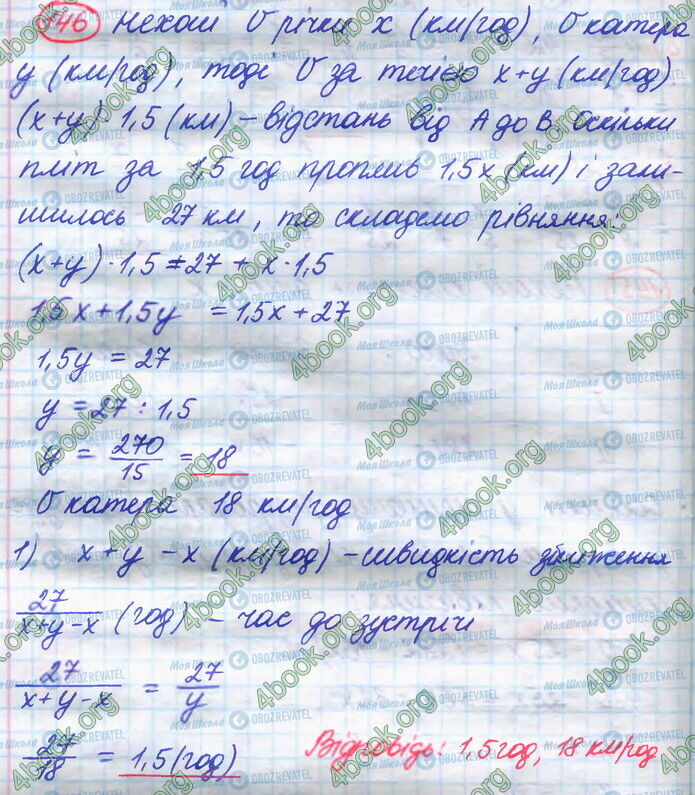 746 Нехай υ річки x (км/год), υ катера
y (км/год), тоді υ за течією x+y (км/год)
(x+y) 1,5 (км) – відстань від А до В. Оскільки
пліт за 1,5 год проплив 1,5x (км) і зали-
шилось 27 км, то складемо рівняння:
(x+y)·1,5 = 27 + x·1,5
1,5x + 1,5y = 1,5x + 27
1,5y = 27
y = 27 : 1,5
y = 270/15 = 18
υ катера 18 км/год
1) x+y – x (км/год) – швидкість зближення
27/(x+y–x) (год) – час до зустрічі
27/(x+y–x) = 27/y
27/18 = 1,5 (год)
Відповідь: 1,5 год, 18 км/год